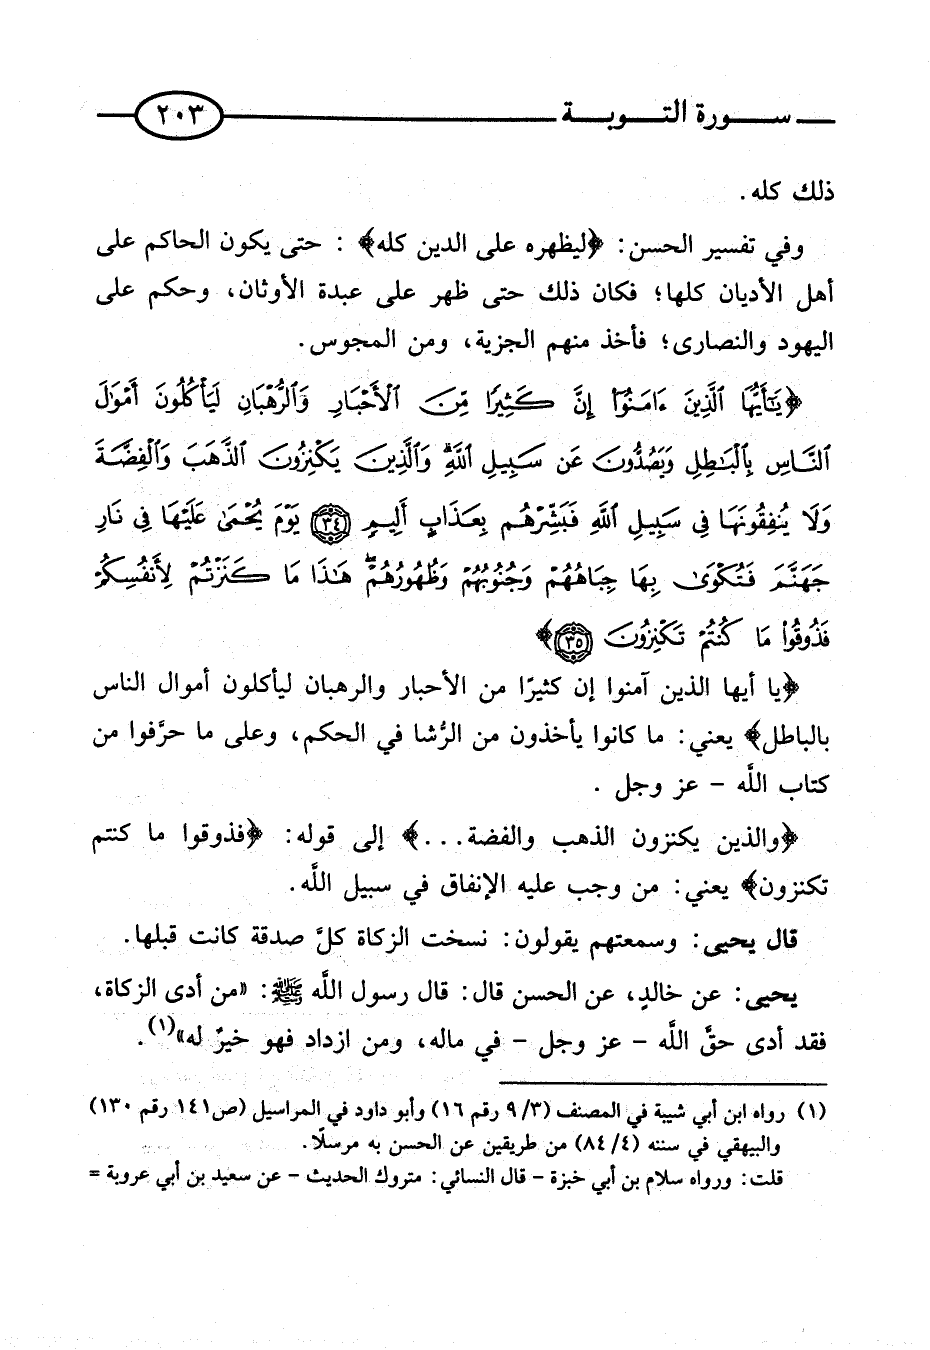 سورة التوبة ٢٠٣
ذلك كله.
وفي تفسير الحسن: ﴿ليظهره على الدين كله﴾ : حتى يكون الحاكم على
أهل الأديان كلها؛ فكان ذلك حتى ظهر على عبدة الأوثان، وحكم على
اليهود والنصارى؛ فأخذ منهم الجزية، ومن المجوس.
﴿يَٰٓأَيُّهَا ٱلَّذِينَ ءَامَنُوٓا۟ إِنَّ كَثِيرًا مِّنَ ٱلْأَحْبَارِ وَٱلرُّهْبَانِ لَيَأْكُلُونَ أَمْوَٰلَ
ٱلنَّاسِ بِٱلْبَٰطِلِ وَيَصُدُّونَ عَن سَبِيلِ ٱللَّهِ ۗ وَٱلَّذِينَ يَكْنِزُونَ ٱلذَّهَبَ وَٱلْفِضَّةَ
وَلَا يُنفِقُونَهَا فِى سَبِيلِ ٱللَّهِ فَبَشِّرْهُم بِعَذَابٍ أَلِيمٍ ٣٤ يَوْمَ يُحْمَىٰ عَلَيْهَا فِى نَارِ
جَهَنَّمَ فَتُكْوَىٰ بِهَا جِبَاهُهُمْ وَجُنُوبُهُمْ وَظُهُورُهُمْ ۖ هَٰذَا مَا كَنَزْتُمْ لِأَنفُسِكُمْ
فَذُوقُوا۟ مَا كُنتُمْ تَكْنِزُونَ ٣٥﴾
﴿يا أيها الذين آمنوا إن كثيرًا من الأحبار والرهبان ليأكلون أموال الناس
بالباطل﴾ يعني: ما كانوا يأخذون من الرُّشا في الحكم، وعلى ما حرَّفوا من
كتاب اللَّه - عز وجل .
﴿والذين يكنزون الذهب والفضة...﴾ إلى قوله: ﴿فذوقوا ما كنتم
تكنزون﴾ يعني: من وجب عليه الإنفاق في سبيل اللَّه.
قال يحيى: وسمعتهم يقولون: نسخت الزكاة كلَّ صدقة كانت قبلها.
يحيى: عن خالدٍ، عن الحسن قال: قال رسول اللَّه ﷺ: «من أدى الزكاة،
فقد أدى حقَّ اللَّه - عز وجل - في ماله، ومن ازداد فهو خيرٌ له»(١).
(١) رواه ابن أبي شيبة في المصنف (٣/ ٩ رقم ١٦) وأبو داود في المراسيل (ص١٤١ رقم ١٣٠)
والبيهقي في سننه (٤/ ٨٤) من طريقين عن الحسن به مرسلًا.
قلت: ورواه سلام بن أبي خبزة - قال النسائي: متروك الحديث - عن سعيد بن أبي عروبة =